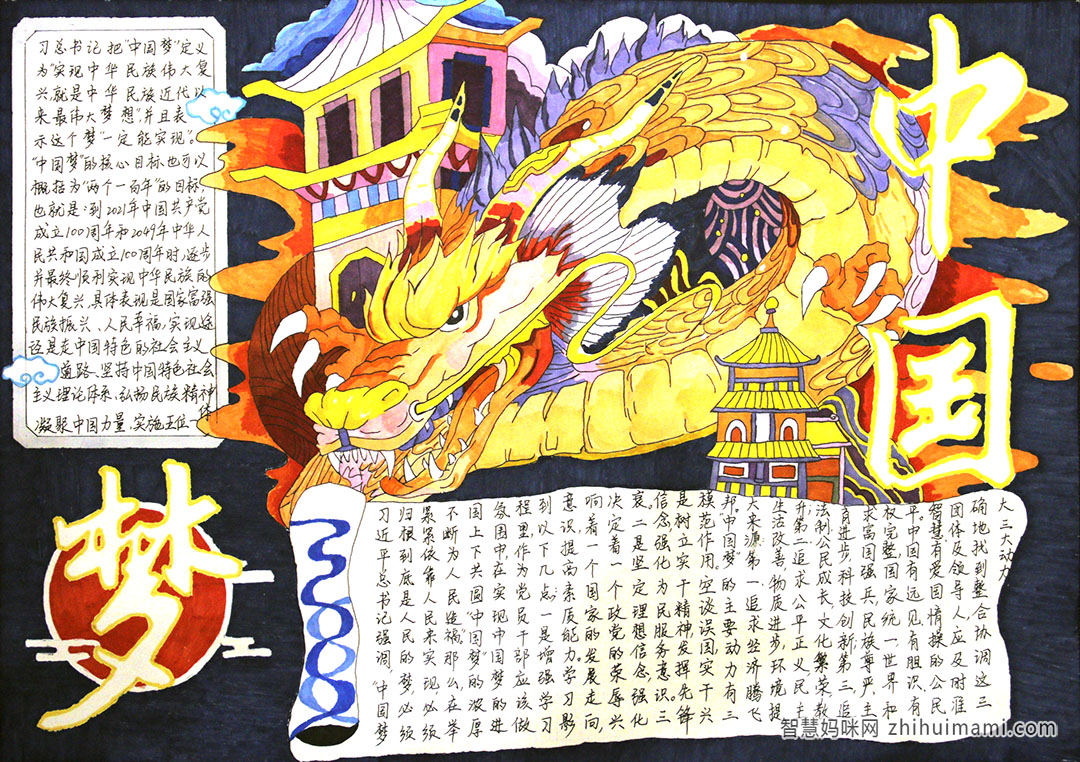 中国
梦
习总书记把“中国梦”定义
为“实现中华民族伟大复
兴,就是中华民族近代以
来最伟大梦想”,并且表
示这个梦“一定能实现”。
“中国梦”的核心目标也可以
概括为“两个一百年”的目标,
也就是:到2021年中国共产党
成立100周年和2049年中华人
民共和国成立100周年时,逐步
并最终顺利实现中华民族的
伟大复兴,具体表现是国家富强
民族振兴、人民幸福,实现途
径是走中国特色的社会主义
道路、坚持中国特色社会
主义理论体系、弘扬民族精神
凝聚中国力量,实施五位一体
习近平总书记强调,“中国梦
归根到底是人民的梦,必须
紧紧依靠人民来实现,必须
不断为人民造福。”那么在举
国上下共圆“中国梦”的浓厚
氛围中,实现中国梦的进
程里,作为党员干部应该做
到以下几点:一是增强学习
意识,提高素质能力。学习影
响着一个国家的发展走向,
决定着一个政党的荣辱兴
衰。二是坚定理想信念,强化
信念强化为民服务意识。三
是树立实干精神,发挥先锋
模范作用。空谈误国实干兴
邦。中国梦”的主要动力有三
大来源:第一,追求经济腾飞
生活改善,物质进步,环境提
升;第二,追求公平正义,民主
法制,公民成长,文化繁荣,教
育进步,科技创新;第三,追
求富国强兵,民族尊严,主
权完整,国家统一,世界和
平。中国有远见,有胆识,有
智慧,有爱国情操的公民
团体及领导人应及时准
确地找到整合协调这三
大三大动力
智慧妈咪网 zhihuimami.com